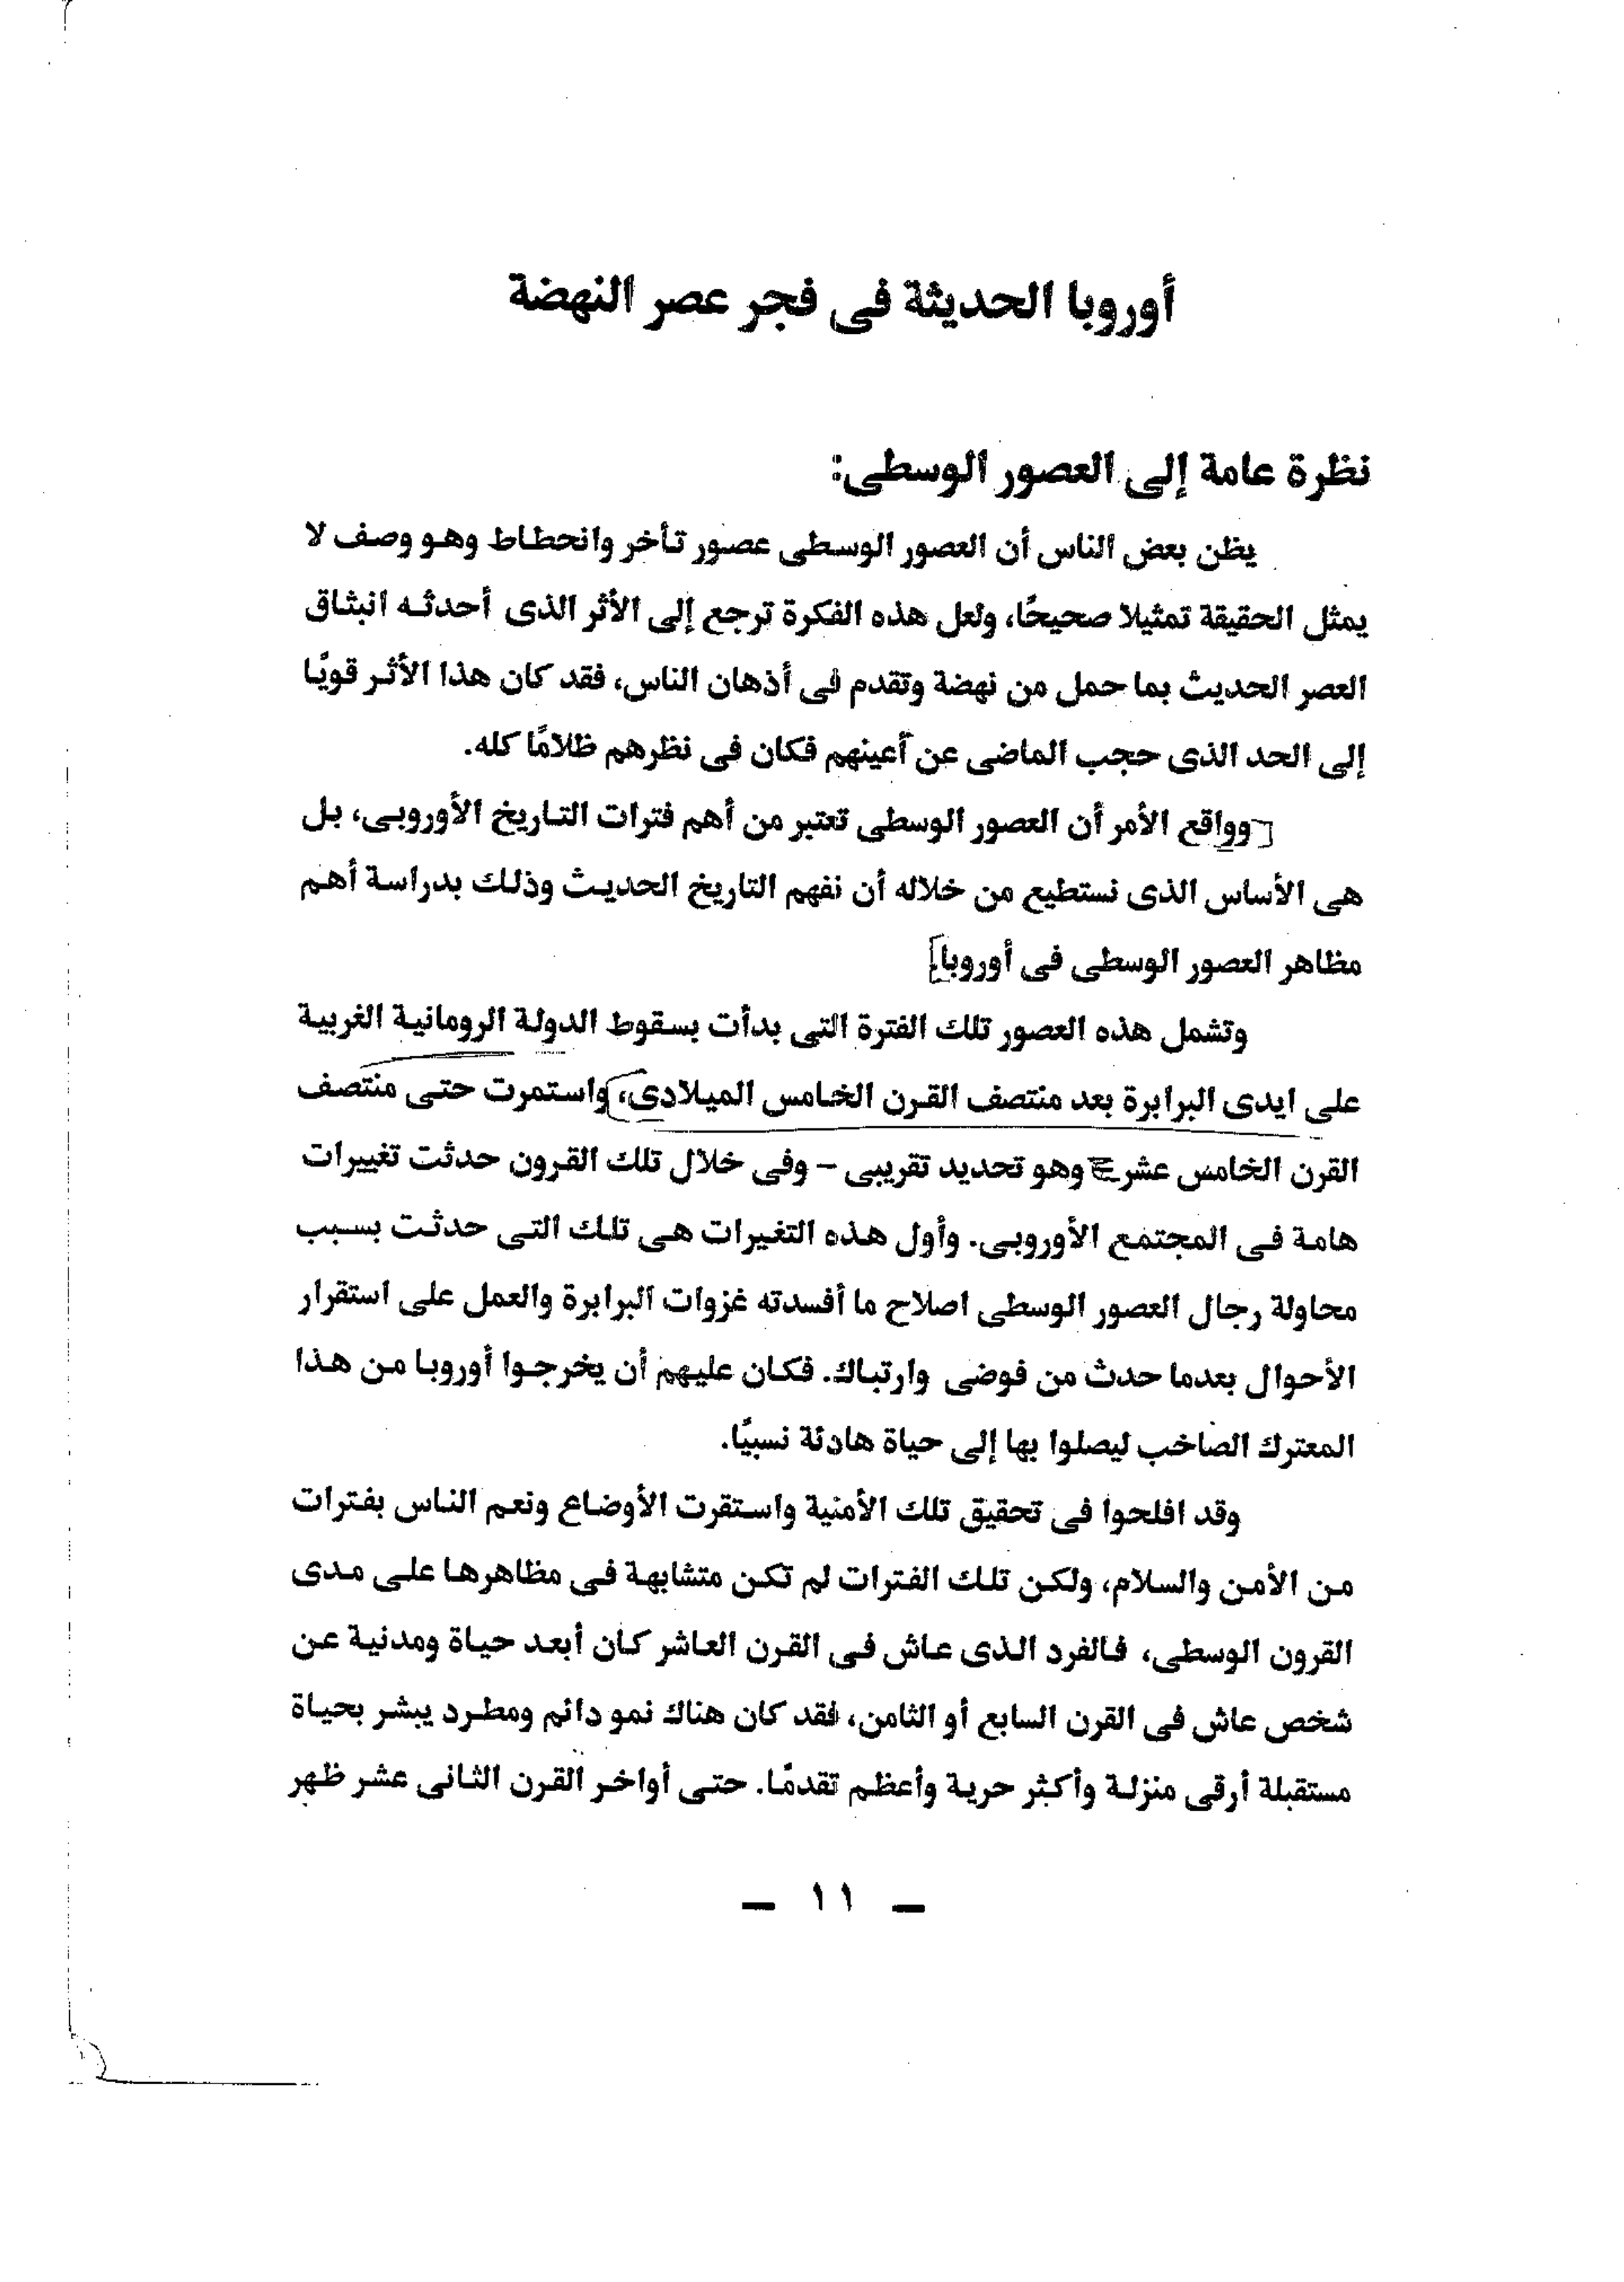 أوروبا الحديثة فى فجر عصر النهضة
نظرة عامة إلى العصور الوسطى:
يظن بعض الناس أن العصور الوسطى عصور تأخر وانحطاط وهو وصف لا
يمثل الحقيقة تمثيلا صحيحًا، ولعل هذه الفكرة ترجع إلى الأثر الذى أحدثه انبثاق
العصر الحديث بما حمل من نهضة وتقدم فى أذهان الناس، فقد كان هذا الأثر قويًا
إلى الحد الذى حجب الماضى عن أعينهم فكان فى نظرهم ظلامًا كله.
وواقع الأمر أن العصور الوسطى تعتبر من أهم فترات التاريخ الأوروبى، بل
هى الأساس الذى نستطيع من خلاله أن نفهم التاريخ الحديث وذلك بدراسة أهم
مظاهر العصور الوسطى فى أوروبا
وتشمل هذه العصور تلك الفترة التى بدأت بسقوط الدولة الرومانية الغربية
على ايدى البرابرة بعد منتصف القرن الخامس الميلادى، واستمرت حتى منتصف
القرن الخامس عشر – وهو تحديد تقريبى – وفى خلال تلك القرون حدثت تغييرات
هامة فى المجتمع الأوروبى. وأول هذه التغيرات هى تلك التى حدثت بسبب
محاولة رجال العصور الوسطى اصلاح ما أفسدته غزوات البرابرة والعمل على استقرار
الأحوال بعدما حدث من فوضى وارتباك. فكان عليهم أن يخرجوا أوروبا من هذا
المعترك الصاخب ليصلوا بها إلى حياة هادئة نسبيًا.
وقد افلحوا فى تحقيق تلك الأمنية واستقرت الأوضاع ونعم الناس بفترات
من الأمن والسلام، ولكن تلك الفترات لم تكن متشابهة فى مظاهرها على مدى
القرون الوسطى، فالفرد الذى عاش فى القرن العاشر كان أبعد حياة ومدنية عن
شخص عاش فى القرن السابع أو الثامن، فقد كان هناك نمو دائم ومطرد يبشر بحياة
مستقبلة أرقى منزلة وأكثر حرية وأعظم تقدمًا. حتى أواخر القرن الثانى عشر ظهر
– ١١ –